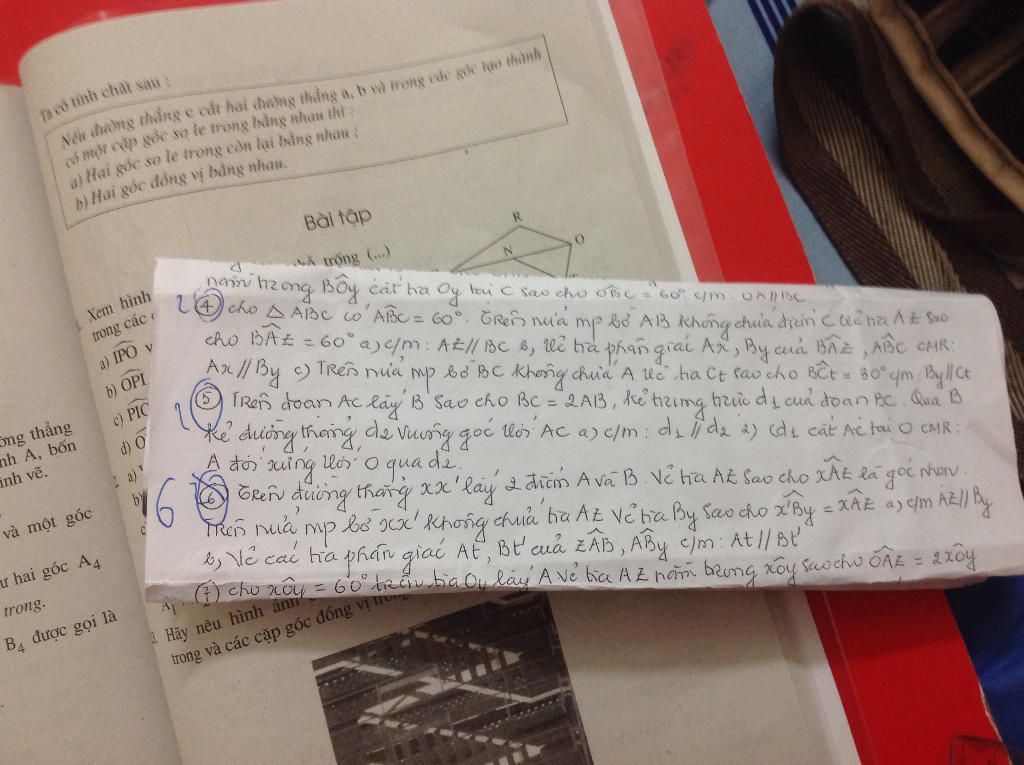 Ta có tính chất sau :
Nếu đường thẳng c cắt hai đường thẳng a, b và trong các góc tạo thành
có một cặp góc so le trong bằng nhau thì :
a) Hai góc so le trong còn lại bằng nhau ;
b) Hai góc đồng vị bằng nhau.
Bài tập
trống (...)
R
N
O
Xem hình
trong các
a) IPO v
b) OPI
c) PIC
d) O
a)
b)
nằm trong BÔy cắt tia Oy tại C sao cho OBC = 60° c/m: OA//BC
④ cho △ ABC có ABC = 60°. Trên nửa mp bờ AB không chứa điểm C vẽ tia Az sao
cho BAz = 60° a) c/m: Az // BC b, vẽ tia phân giác Ax, By của BAz, ABC CMR:
Ax // By c) Trên nửa mp bờ BC không chứa A vẽ tia Ct sao cho BCt = 30° c/m: By // Ct
⑤ Trên đoạn AC lấy B sao cho BC = 2AB, kẻ trung trực d1 của đoạn BC. Qua B
kẻ đường thẳng d2 vuông góc với AC a) c/m: d1 // d2 2) (d1 cắt AC tại O CMR:
A đối xứng với O qua d2.
6 ⑥ Trên đường thẳng xx' lấy 2 điểm A và B. Vẽ tia Az sao cho xAz là góc nhọn.
Trên nửa mp bờ xx' không chứa tia Az vẽ tia By sao cho x'By = xAz a) c/m Az // By
b, Vẽ các tia phân giác At, Bt' của zAB, ABy c/m: At // Bt'
⑦ cho xÔy = 60° trên tia Oy lấy A vẽ tia Az nằm trong xÔy sao cho OAz = 2xÔy
ờng thẳng
nh A, bốn
ình vẽ.
và một góc
ư hai góc A4
trong.
B4 được gọi là
A1
Hãy nêu hình ảnh
trong và các cặp góc đồng vị trong